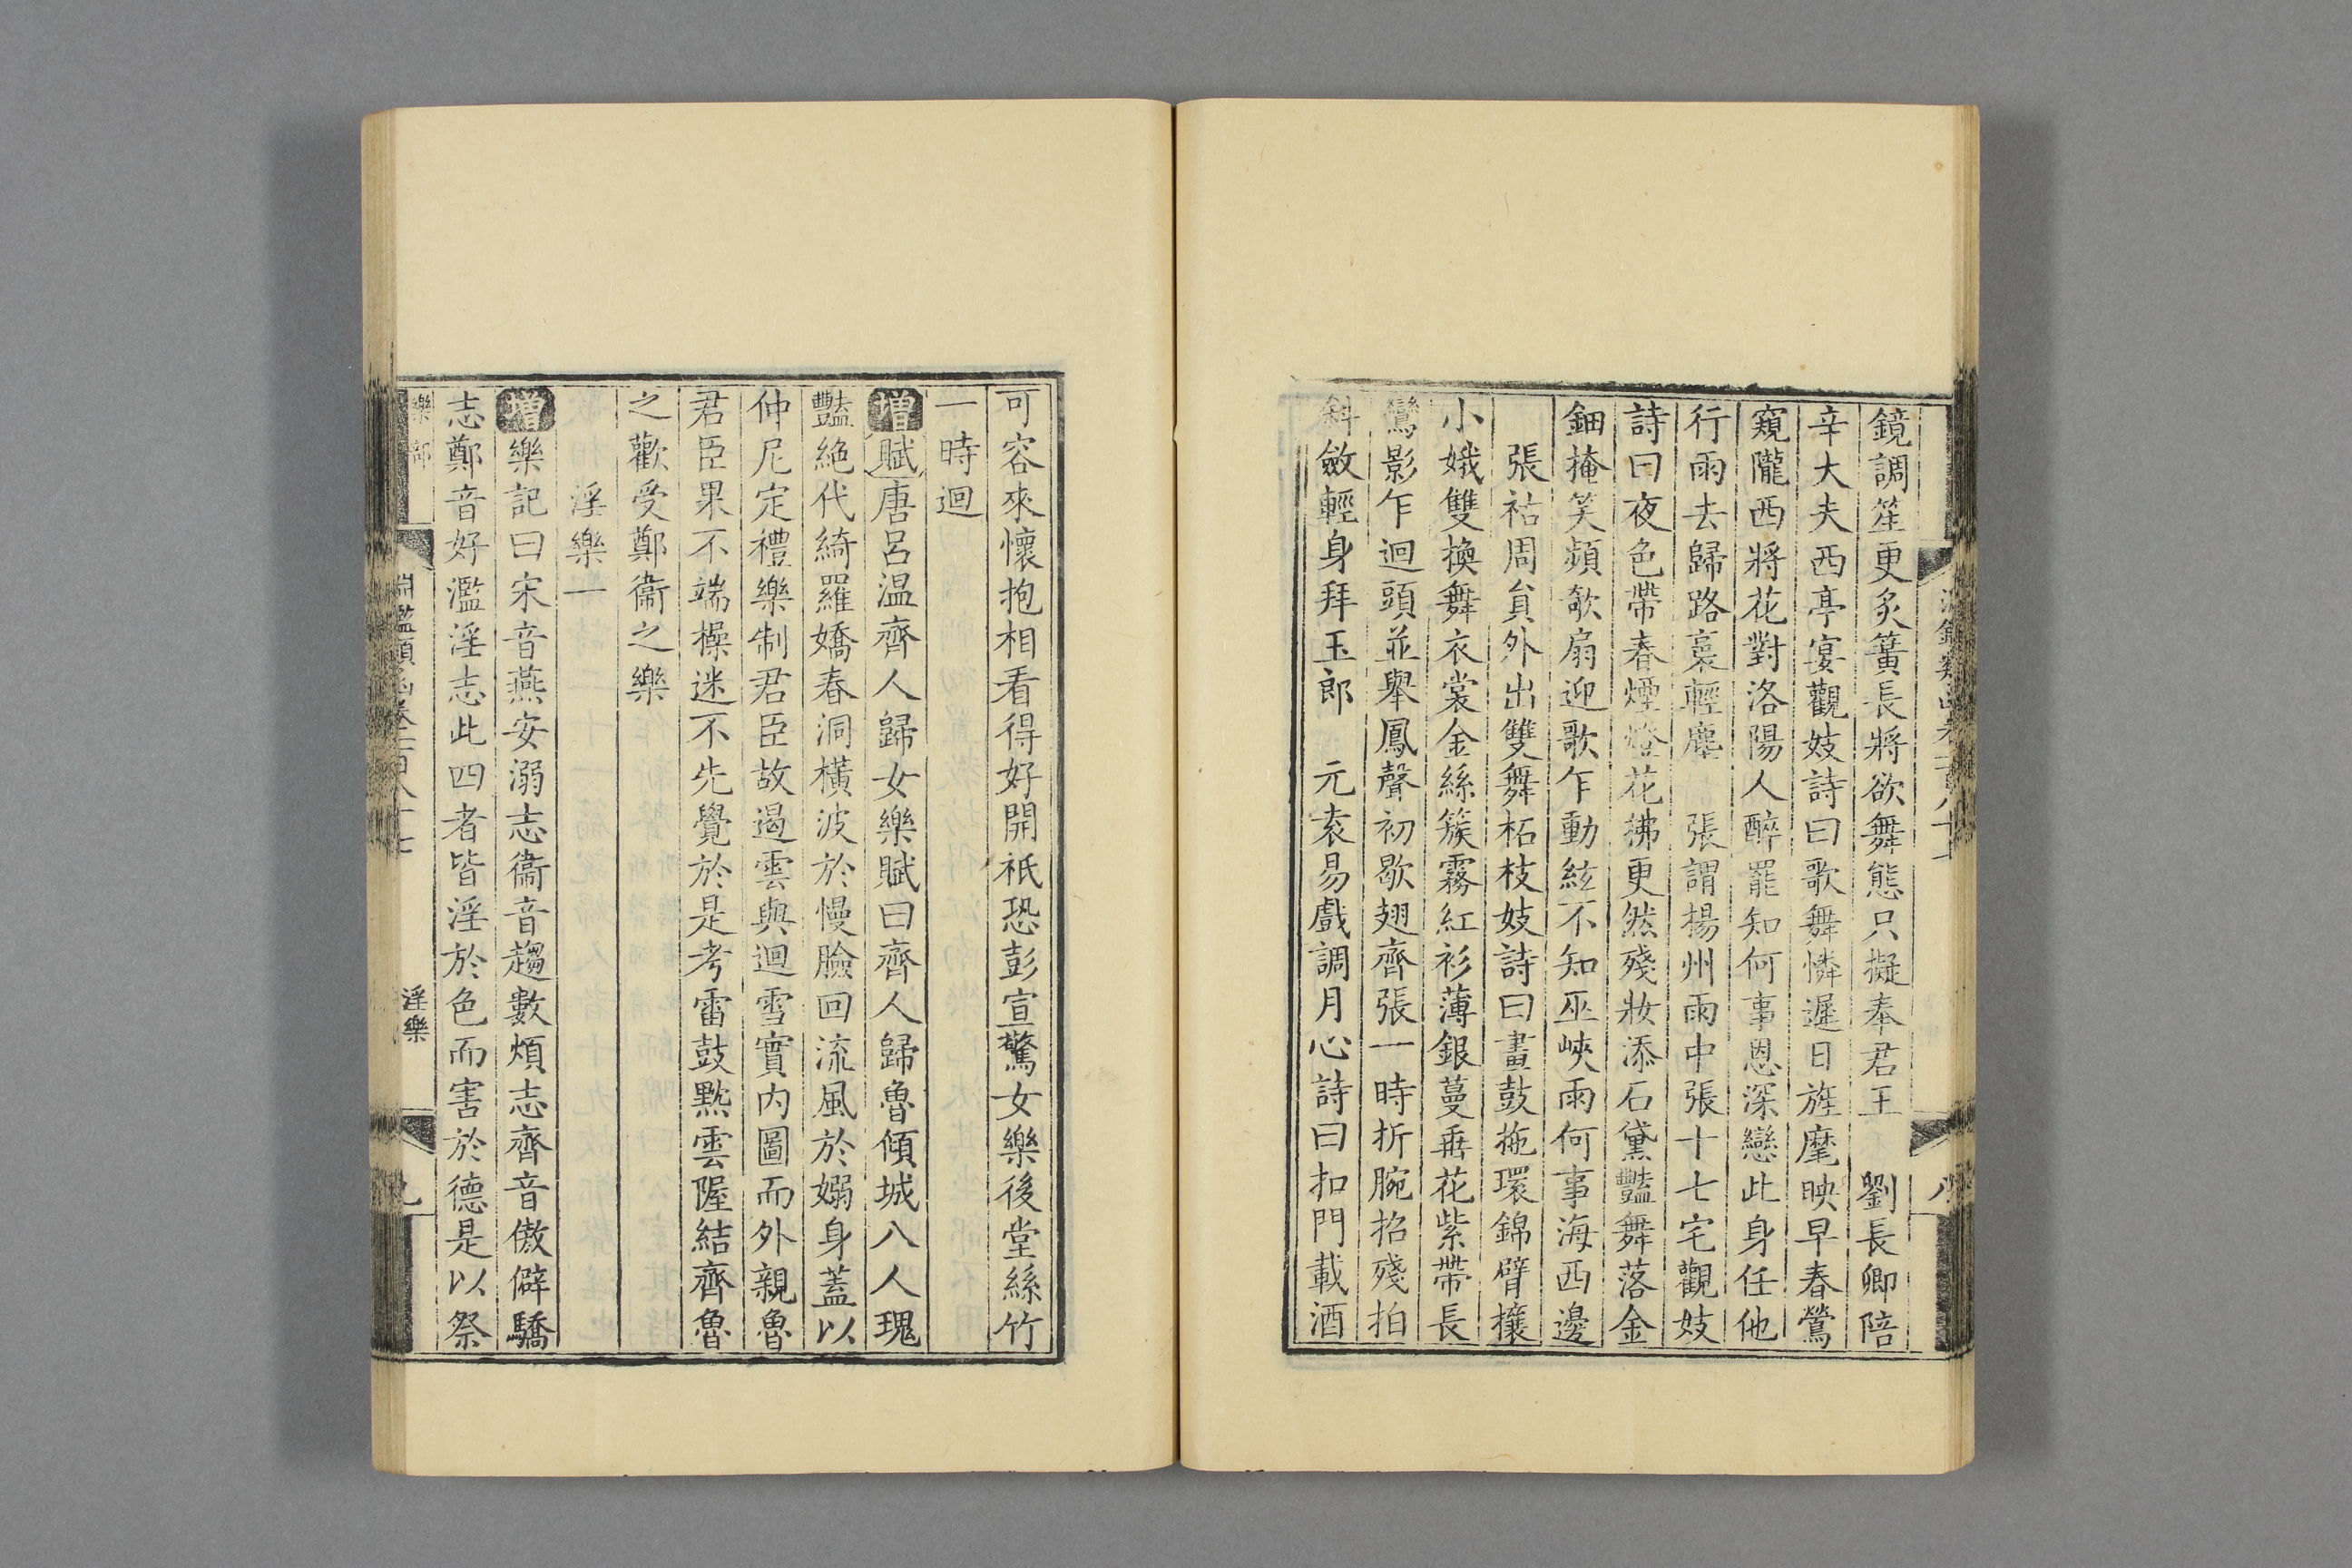 鏡調笙更炙簧長將欲舞態只擬奉君王　劉長卿陪
辛大夫西亭宴觀妓詩曰歌舞憐遲日旄麾映早春鶯
窺隴西將花對洛陽人醉罷知何事恩深戀此身任他
行雨去歸路裛輕塵　張謂揚州雨中張十七宅觀妓
詩曰夜色帶春煙燈花拂更然殘妝添石黛豔舞落金
鈿掩笑頻欹扇迎歌乍動絃不知巫峽雨何事海西邊
張祜周貟外出雙舞柘枝妓詩曰畫鼓拖環錦臂攘
小娥雙換舞衣裳金絲簇霧紅衫薄銀蔓垂花紫帶長
鸞影乍迴頭並舉鳳聲初歇翅齊張一時折腕招殘拍
斜斂輕身拜玉郎　元袁易戲調月心詩曰扣門載酒
八
可容來懷抱相看得好開祇恐彭宣驚女樂後堂絲竹
一時迴
增賦唐呂温齊人歸女樂賦曰齊人歸魯傾城八人瑰
豔絕代綺羅嬌春洞橫波於慢臉回流風於嫋身蓋以
仲尼定禮樂制君臣故遏雲與迴雪實內圖而外親魯
君臣果不端操迷不先覺於是考雷鼓黙雲幄結齊魯
之歡受鄭衞之樂
淫樂一
增樂記曰宋音燕安溺志衞音趨數煩志齊音傲僻驕
志鄭音好濫淫志此四者皆淫於色而害於德是以祭
樂部
淵鑑類函卷一百八十七
淫樂
九